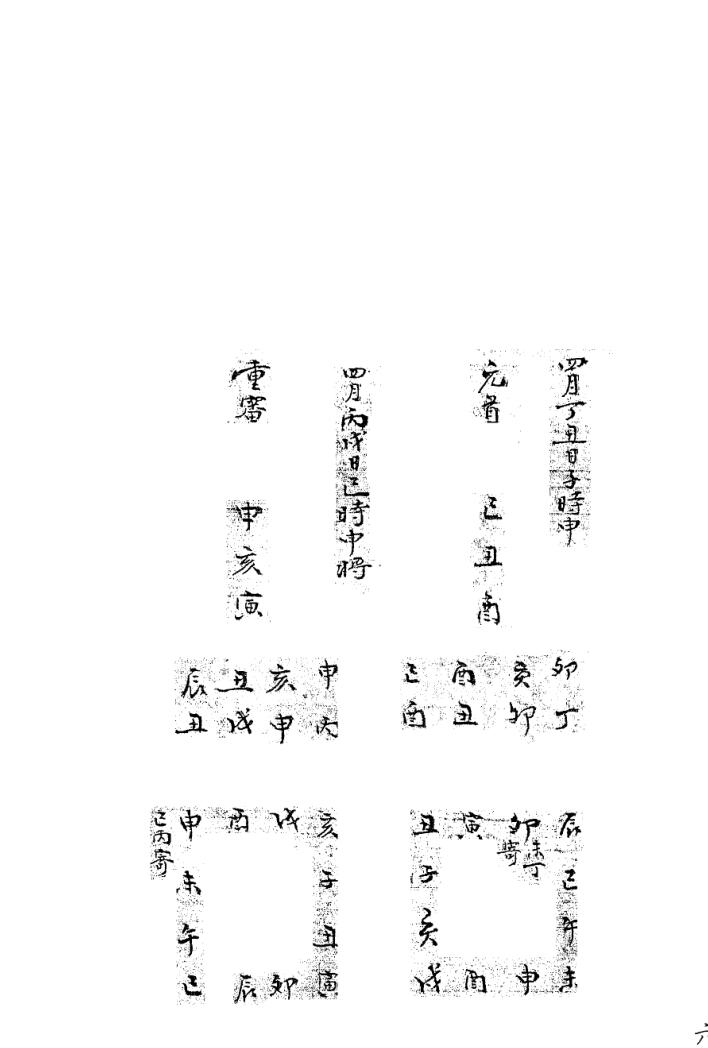 四月丁丑日子時申
元首 巳丑酉
卯丁
亥卯
酉丑
巳酉
辰巳午未
卯 申
未丁
寄
寅 酉
丑子亥戌
四月丙戌日巳時申將
重審 申亥寅
申丙
亥申
丑戌
辰丑
亥子丑寅
戌 卯
酉 辰
申未午巳
巳丙寄